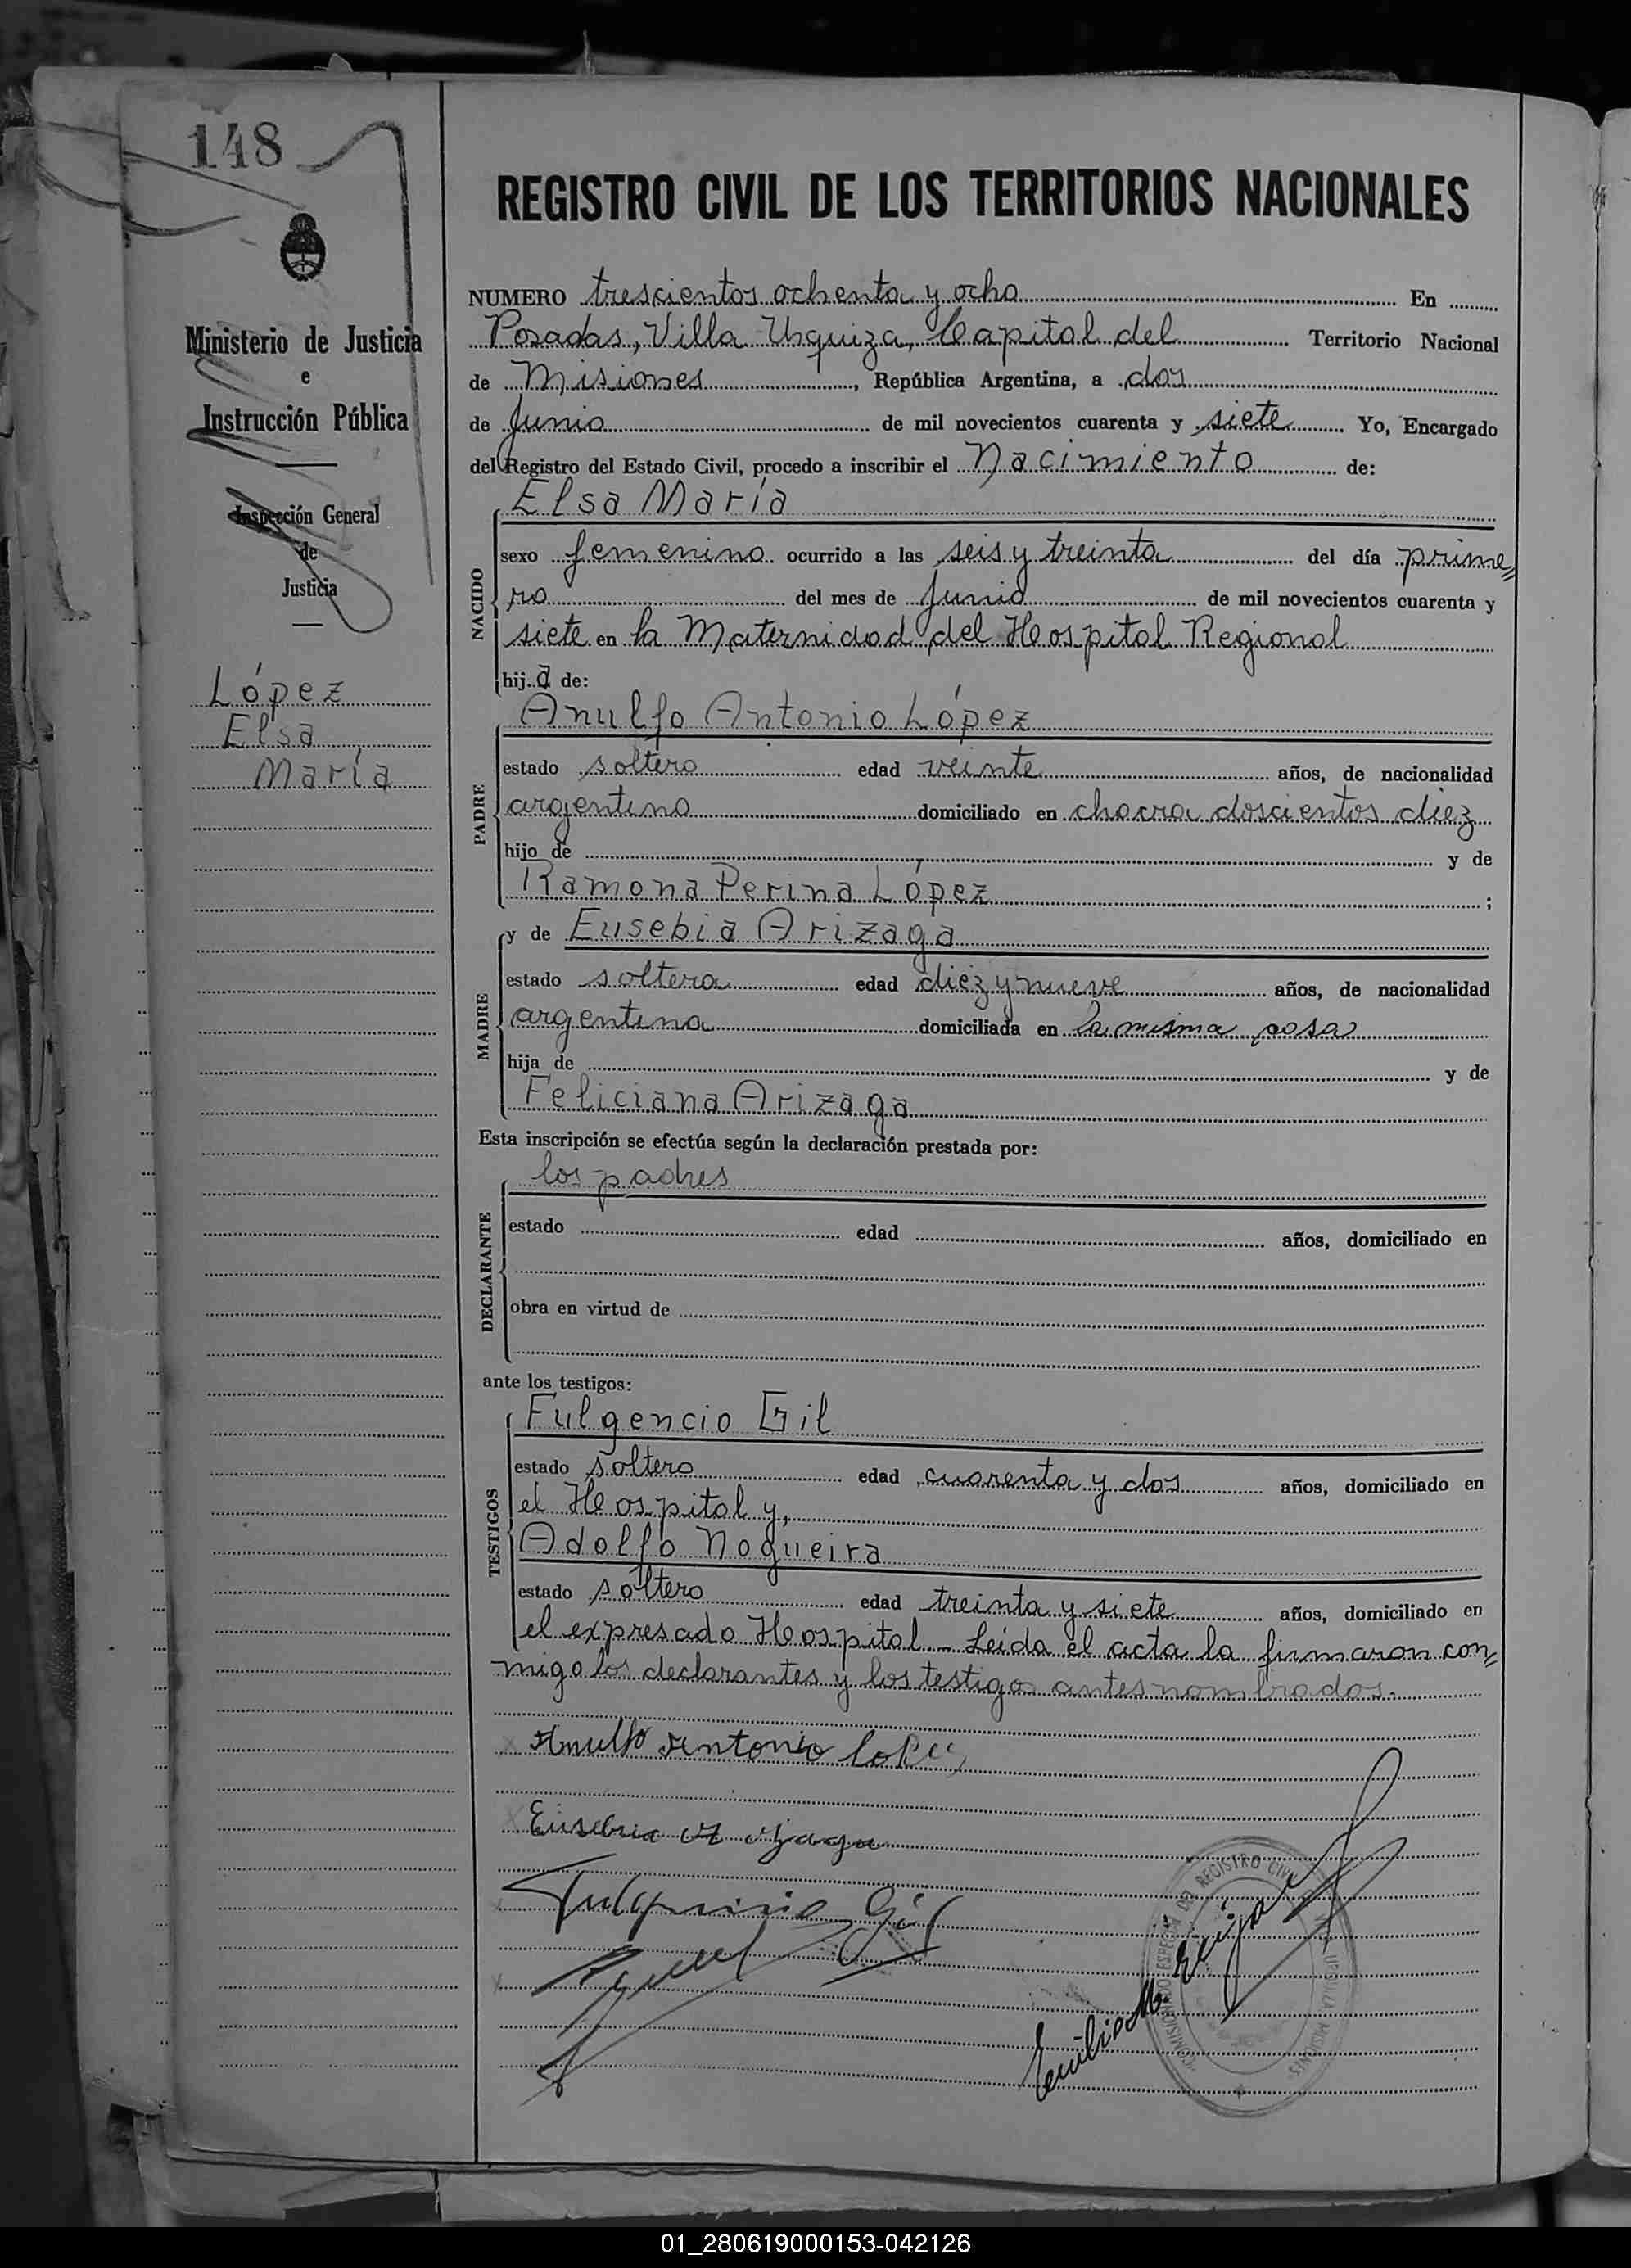 148
Ministerio de Justicia
e
Instrucción Pública
Inspección General
de
Justicia
López
Elsa
María
REGISTRO CIVIL DE LOS TERRITORIOS NACIONALES
NUMERO trescientos ochenta y ocho En
Posadas, Villa Urquiza, Capital del Territorio Nacional
de Misiones, República Argentina, a dos
de Junio de mil novecientos cuarenta y siete Yo, Encargado
del Registro del Estado Civil, procedo a inscribir el Nacimiento de:
Elsa María
NACIDO
sexo femenino ocurrido a las seis y treinta del día prime=
ro del mes de Junio de mil novecientos cuarenta y
siete en la Maternidad del Hospital Regional
hija de:
Anulfo Antonio López
PADRE
estado soltero edad veinte años, de nacionalidad
argentino domiciliado en chacra doscientos diez
hijo de y de
Ramona Perina López ;
MADRE
y de Eusebia Arizaga
estado soltera edad diez y nueve años, de nacionalidad
argentina domiciliada en la misma casa
hija de y de
Feliciana Arizaga
Esta inscripción se efectúa según la declaración prestada por:
los padres
DECLARANTE
estado edad años, domiciliado en
obra en virtud de
ante los testigos:
TESTIGOS
Fulgencio Gil
estado soltero edad cuarenta y dos años, domiciliado en
el Hospital y,
Adolfo Nogueira
estado soltero edad treinta y siete años, domiciliado en
el expresado Hospital.- Leída el acta la firmaron con=
migo los declarantes y los testigos antes nombrados.-
Anulfo Antonio Lopez
Eusebia
Fulgencio Gil
Emilio M.
REGISTRO CIVIL
MISIONES
01_280619000153-042126